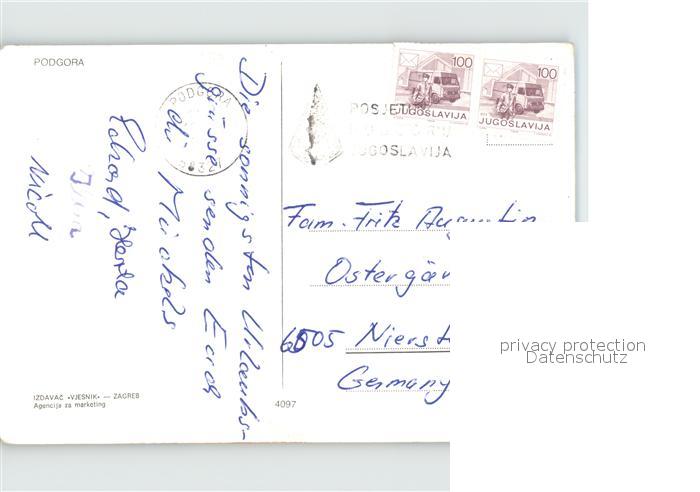 PODGORA
Die sonnigsten Urlaubs-
grüsse senden Euch
die Mickels
Nicoll
PODGORA
POSJETI
JUGOSLAVIJA
100
JUGOSLAVIJA
100
JUGOSLAVIJA
Fam. Fritz
Ostergär
6505 Nierst
Germany
IZDAVAČ «VJESNIK» — ZAGREB
Agencija za marketing
4097
privacy protection
Datenschutz